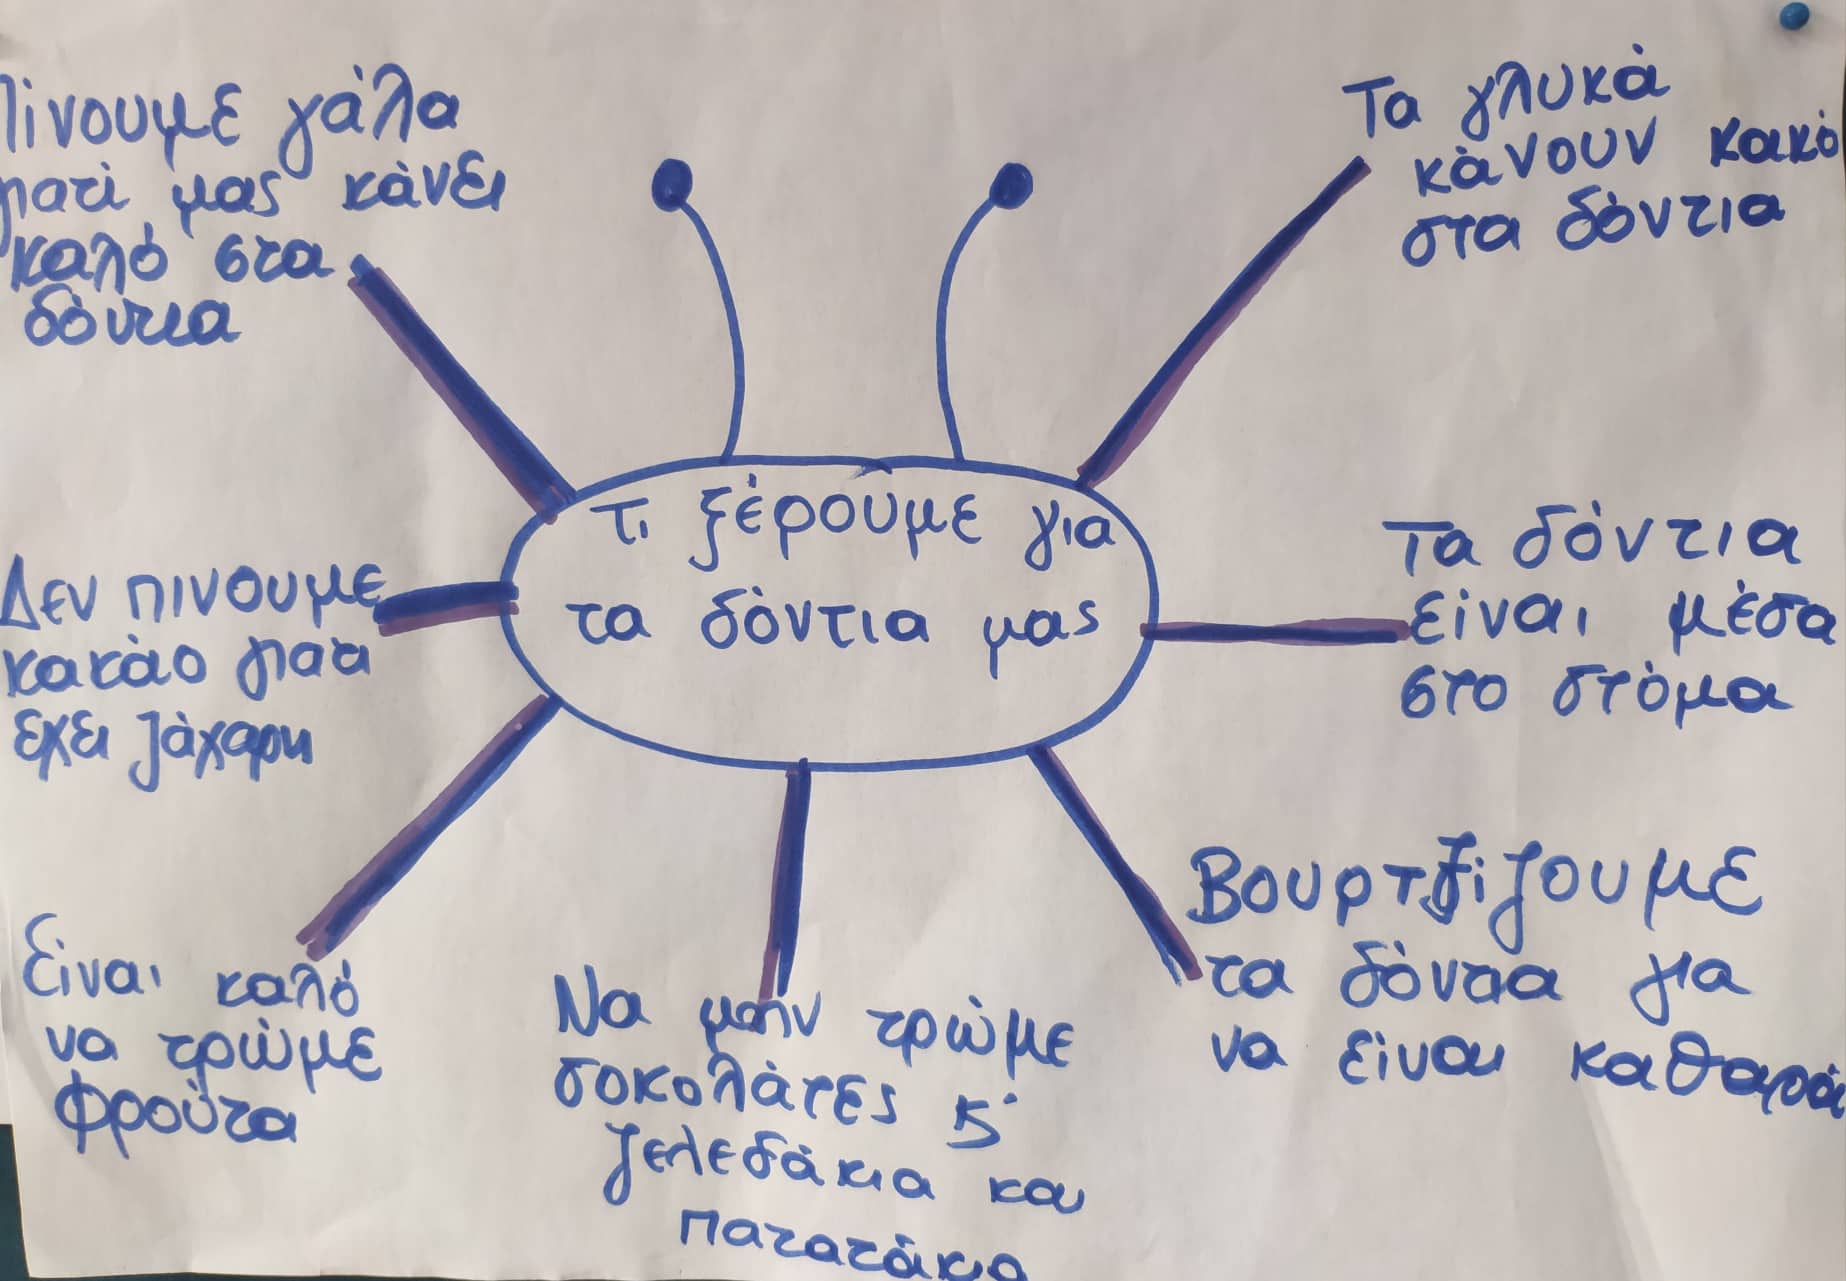 τι ξέρουμε για
τα δόντια μας
Πίνουμε γάλα
γιατί μας κάνει
καλό στα
δόντια
Τα γλυκά
κάνουν κακό
στα δόντια
Δεν πινουμε
κακάο γιατι
εχει ζάχαρη
Τα δόντια
είναι μέσα
στο στόμα
Είναι καλό
να τρώμε
φρούτα
Να μην τρώμε
σοκολάτες ϗ
ζελεδάκια και
πατατάκια
Βουρτσίζουμε
τα δόντια για
να είναι καθαρά